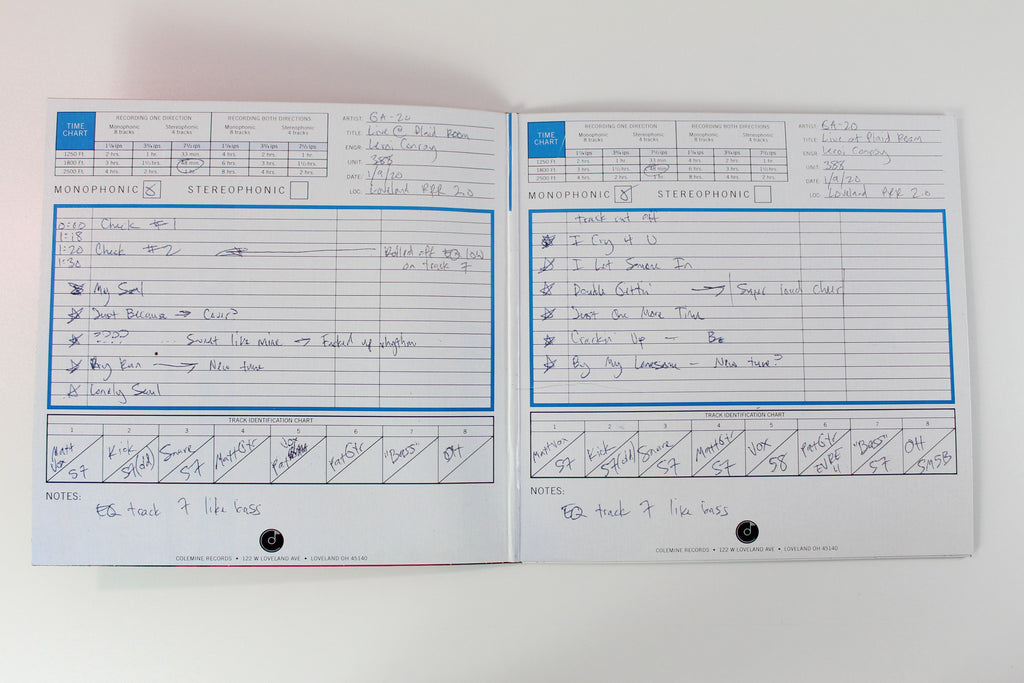 TIME CHART
RECORDING ONE DIRECTION RECORDING BOTH DIRECTIONS
Monophonic 8 tracks Stereophonic 4 tracks Monophonic 8 tracks Stereophonic 4 tracks
1⅞ ips 3¾ ips 7½ ips 1⅞ ips 3¾ ips 7½ ips
1250 FT 2 hrs. 1 hr. 33 min. 4 hrs. 2 hrs. 1 hr.
1800 FT 3 hrs. 1½ hrs. 48 min. 6 hrs. 3 hrs. 1½ hrs.
2500 FT 4 hrs. 2 hrs. 1 hr. 8 hrs. 4 hrs. 2 hrs.
ARTIST: GA-20
TITLE: Live @ Plaid Room
ENGR: Leroi Conroy
UNIT: 388
DATE: 1/9/20
LOC: Loveland PRR 2.0
MONOPHONIC STEREOPHONIC
0:00 Check #1
1:18
1:20 Check #2 Rolled off EQ low
1:30 on track 7
My Soul
Just Because → Cover?
???? ... Sweet like mine → Fucked up rhythm
Big Run → New tune
Lonely Soul
TRACK IDENTIFICATION CHART
1 2 3 4 5 6 7 8
Matt Vox 57 Kick 57(dd) Snare 57 Matt Gtr Vox Pat Pat Gtr "Bass" OH
NOTES:
EQ track 7 like bass
COLEMINE RECORDS • 122 W LOVELAND AVE • LOVELAND OH 45140
TIME CHART
RECORDING ONE DIRECTION RECORDING BOTH DIRECTIONS
Monophonic 8 tracks Stereophonic 4 tracks Monophonic 8 tracks Stereophonic 4 tracks
1⅞ ips 3¾ ips 7½ ips 1⅞ ips 3¾ ips 7½ ips
1250 FT 2 hrs. 1 hr. 33 min. 4 hrs. 2 hrs. 1 hr.
1800 FT 3 hrs. 1½ hrs. 48 min. 6 hrs. 3 hrs. 1½ hrs.
2500 FT 4 hrs. 2 hrs. 1 hr. 8 hrs. 4 hrs. 2 hrs.
ARTIST: GA-20
TITLE: Live at Plaid Room
ENGR: Leroi Conroy
UNIT: 388
DATE: 1/9/20
LOC: Loveland PRR 2.0
MONOPHONIC STEREOPHONIC
track cut off
I Cry 4 U
I Let Someone In
Double Gettin' → Super loud cheer
Just One More Time
Crackin' Up —
By My Lonesome — New tune?
TRACK IDENTIFICATION CHART
1 2 3 4 5 6 7 8
Matt Vox 57 Kick 57(dd) Snare 57 Matt Gtr 57 Vox 58 Pat Gtr "Bass" 57 OH SM5B
NOTES:
EQ track 7 like bass
COLEMINE RECORDS • 122 W LOVELAND AVE • LOVELAND OH 45140